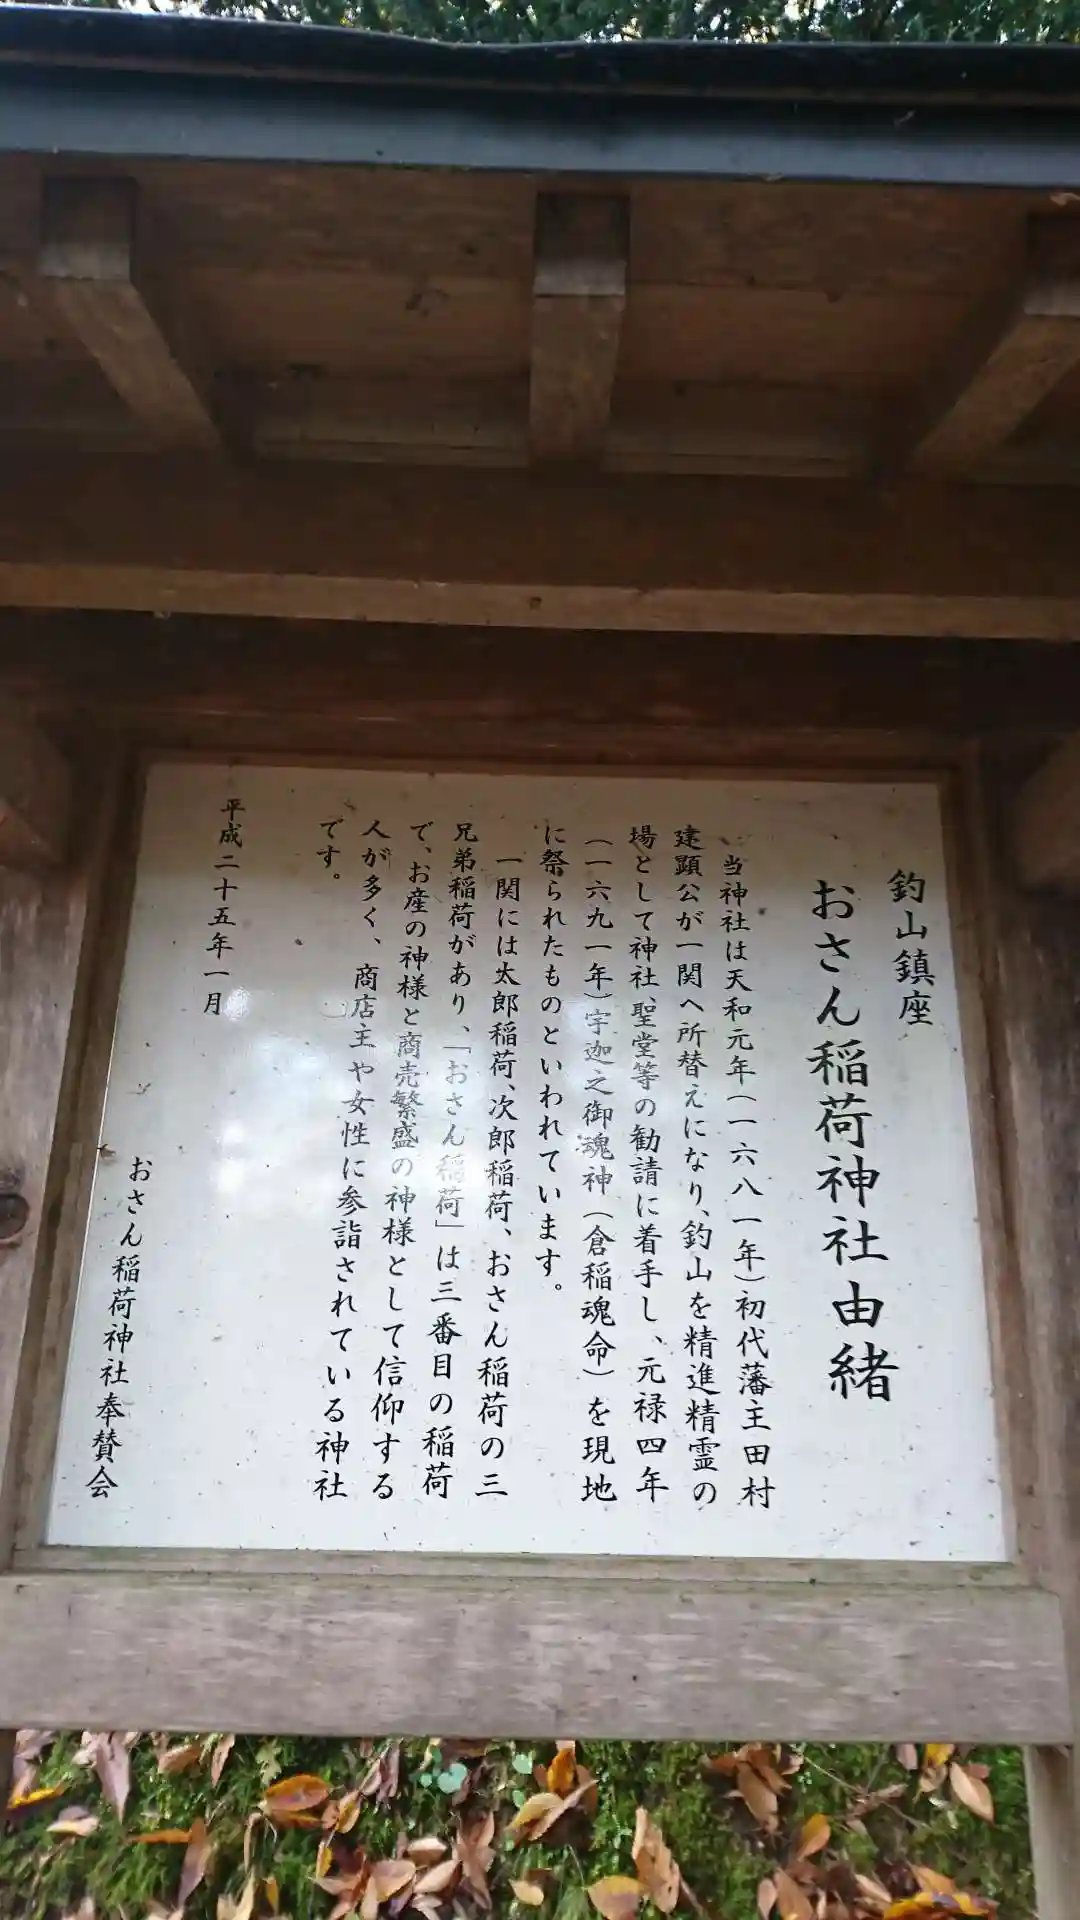 釣山鎮座
おさん稲荷神社由緒
当神社は天和元年(一六八一年)初代藩主田村
建顕公が一関へ所替えになり、釣山を精進精霊の
場として神社、聖堂等の勧請に着手し、元禄四年
(一六九一年)宇迦之御魂神(倉稲魂命)を現地
に祭られたものといわれています。
一関には太郎稲荷、次郎稲荷、おさん稲荷の三
兄弟稲荷があり、「おさん稲荷」は三番目の稲荷
で、お産の神様と商売繁盛の神様として信仰する
人が多く、商店主や女性に参詣されている神社
です。
平成二十五年一月
おさん稲荷神社奉賛会